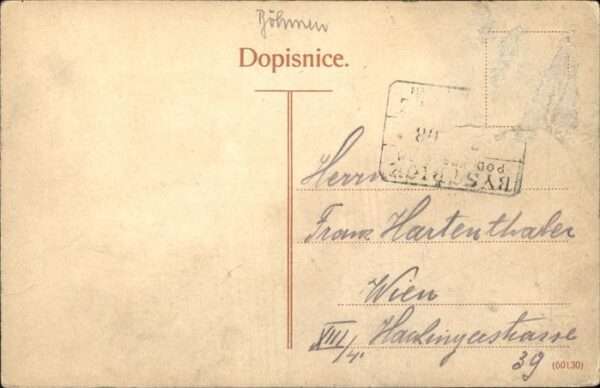 Böhmen
Dopisnice.
08
BYSTŘICE
POD
Herrn
Franz Hartenthaler
Wien
XIII/4. Hackingerstrasse
39
(00130)